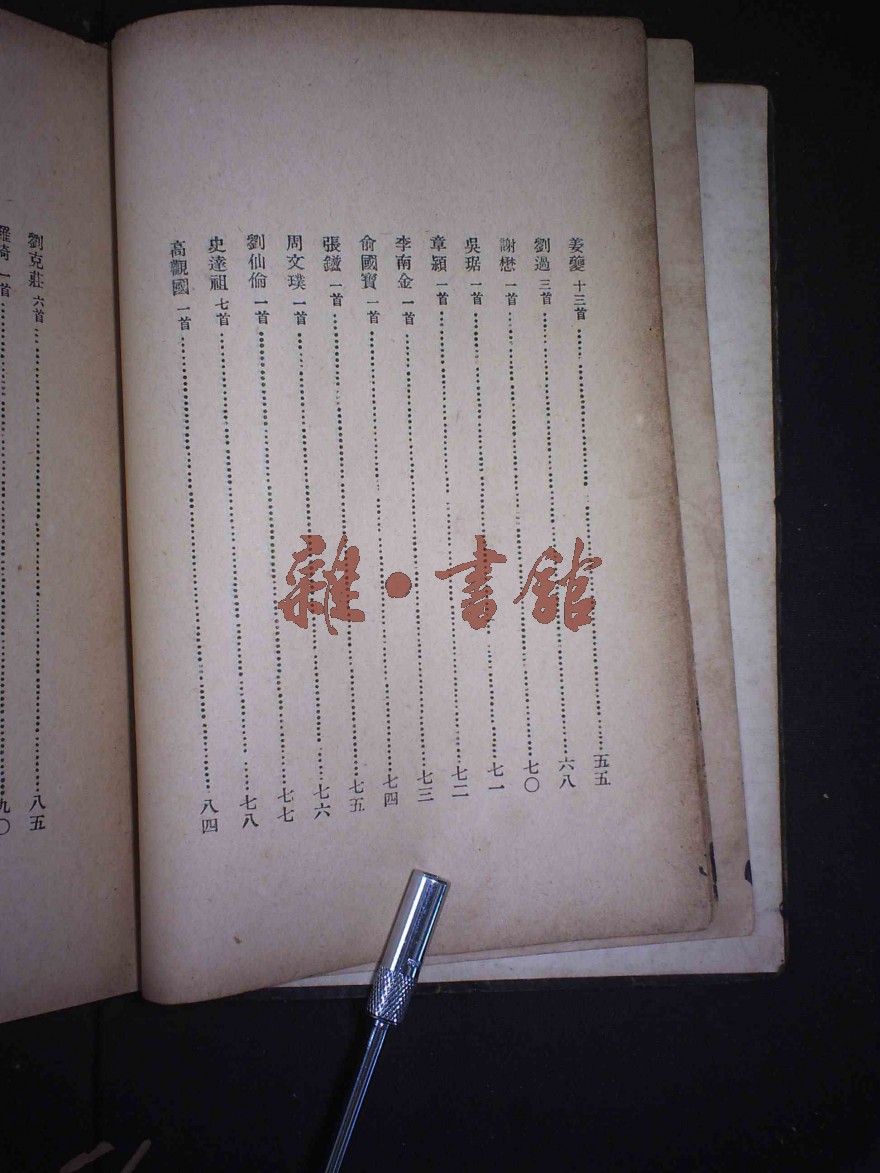 姜夔 十三首……五五
劉過 三首……六八
謝懋 一首……七〇
吳琚 一首……七一
章穎 一首……七二
李南金 一首……七三
俞國寶 一首……七四
張鎡 一首……七五
周文璞 一首……七六
劉仙倫 一首……七七
史達祖 七首……七八
高觀國 一首……八四
劉克莊 六首……八五
一首……九〇
雜·書館